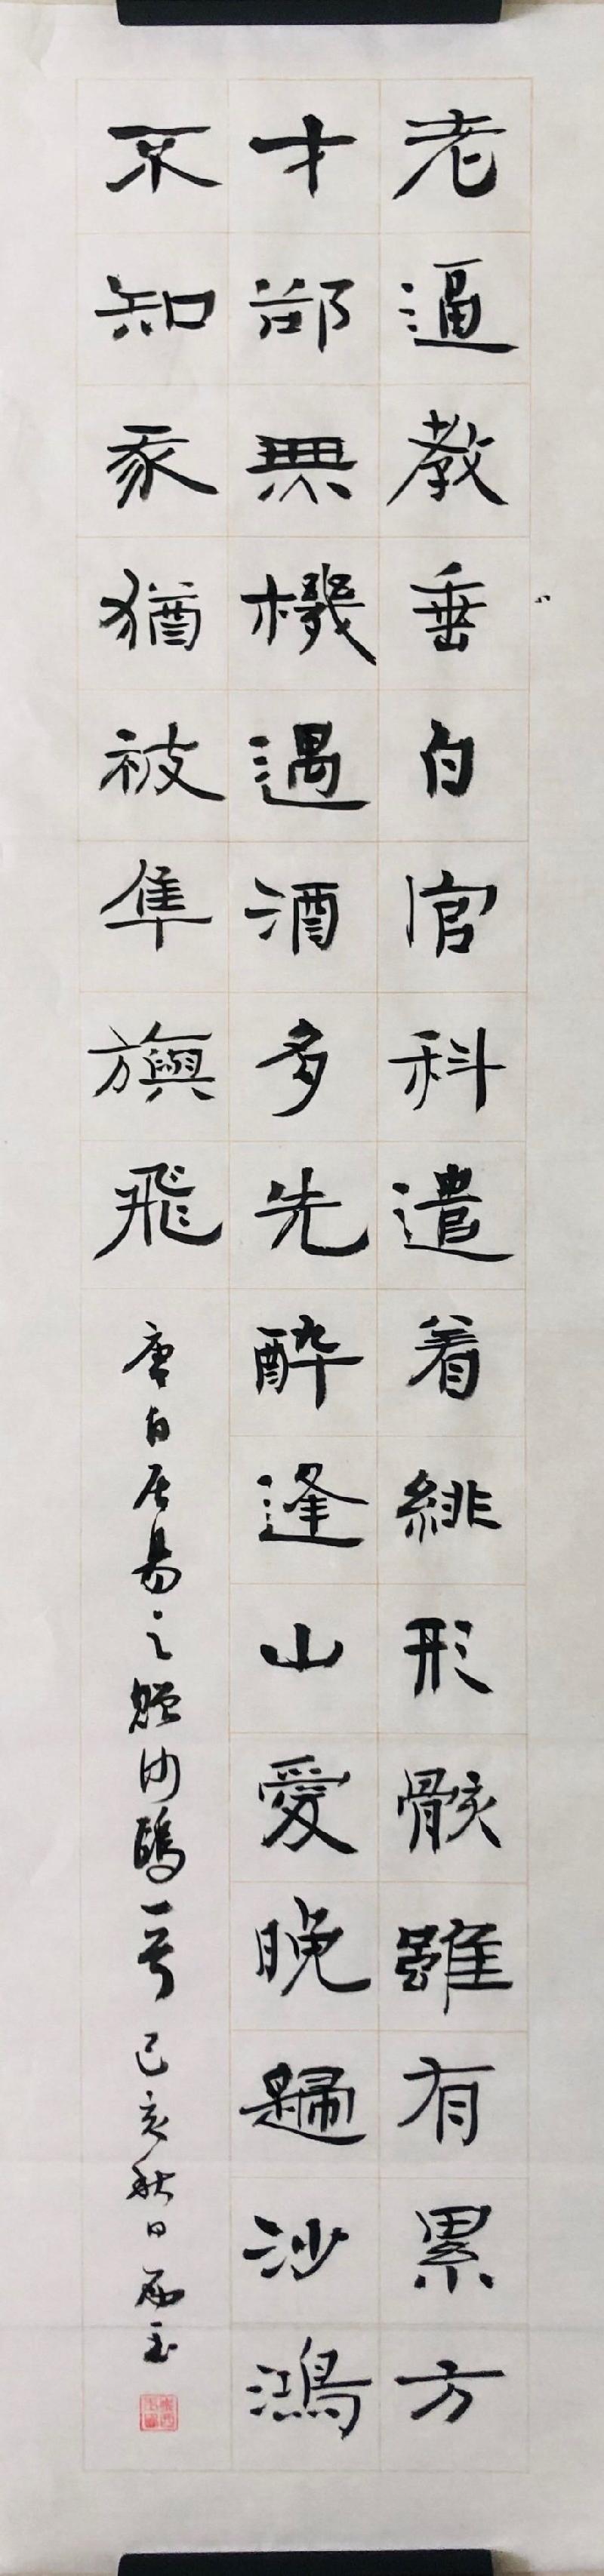 老逼教垂白官科遣着緋形骸雖有累方
才郤無機遇酒多先醉逢山愛晚歸沙鴻
不知豕猶被隼旟飛 唐白居易之贈沙鷗一首 己亥秋日